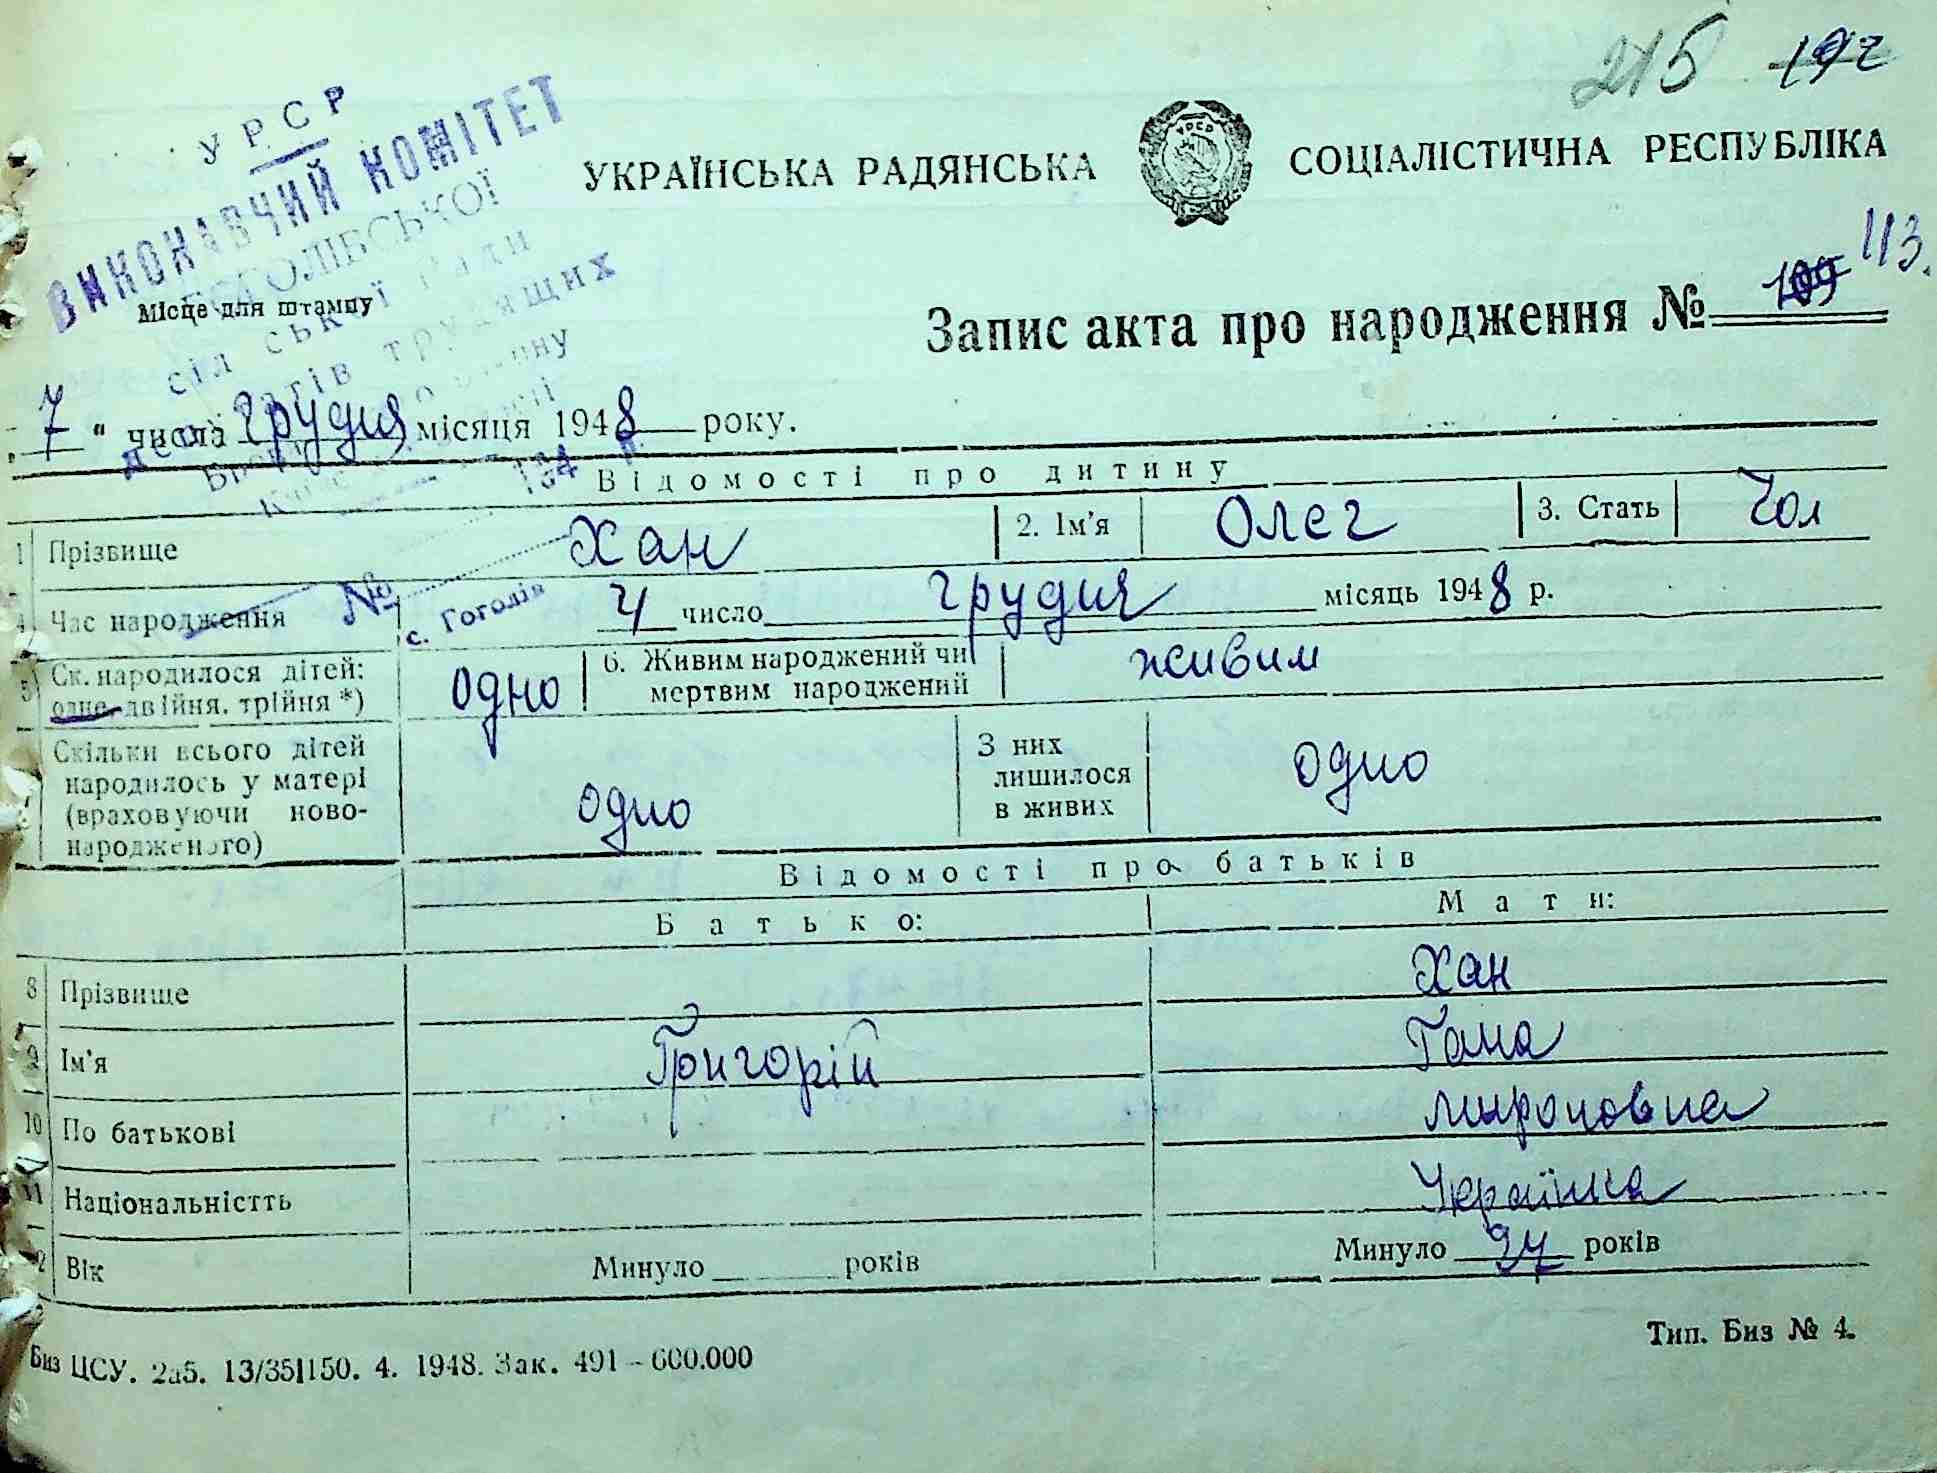 215 192
УРСР
ВИКОНАВЧИЙ КОМІТЕТ
ГОГОЛІВСЬКОЇ
сільської Ради
депутатів трудящих
194 р.
№
с. Гоголів
УКРАЇНСЬКА РАДЯНСЬКА СОЦІАЛІСТИЧНА РЕСПУБЛІКА
Місце для штампу
Запис акта про народження № 109 113.
7 " числа грудня місяця 1948 року.
Відомості про дитину
1 Прізвище Хан 2. Ім'я Олег 3. Стать Чол
4 Час народження 4 число грудня місяць 1948 р.
5 Ск. народилося дітей: одно 6. Живим народжений чи живим
одне, двійня, трійня *) мертвим народжений
Скільки всього дітей З них
народилось у матері одно лишилося одно
(враховуючи ново- в живих
народженого)
Відомості про батьків
Батько: Мати:
8 Прізвище Хан
9 Ім'я Григорій Гана
10 По батькові мироновна
11 Національністть Українка
Вік Минуло рокiв Минуло рокiв
Биз ЦСУ. 2а5. 13/35І150. 4. 1948. Зак. 491 – 600.000
Тип. Биз № 4.